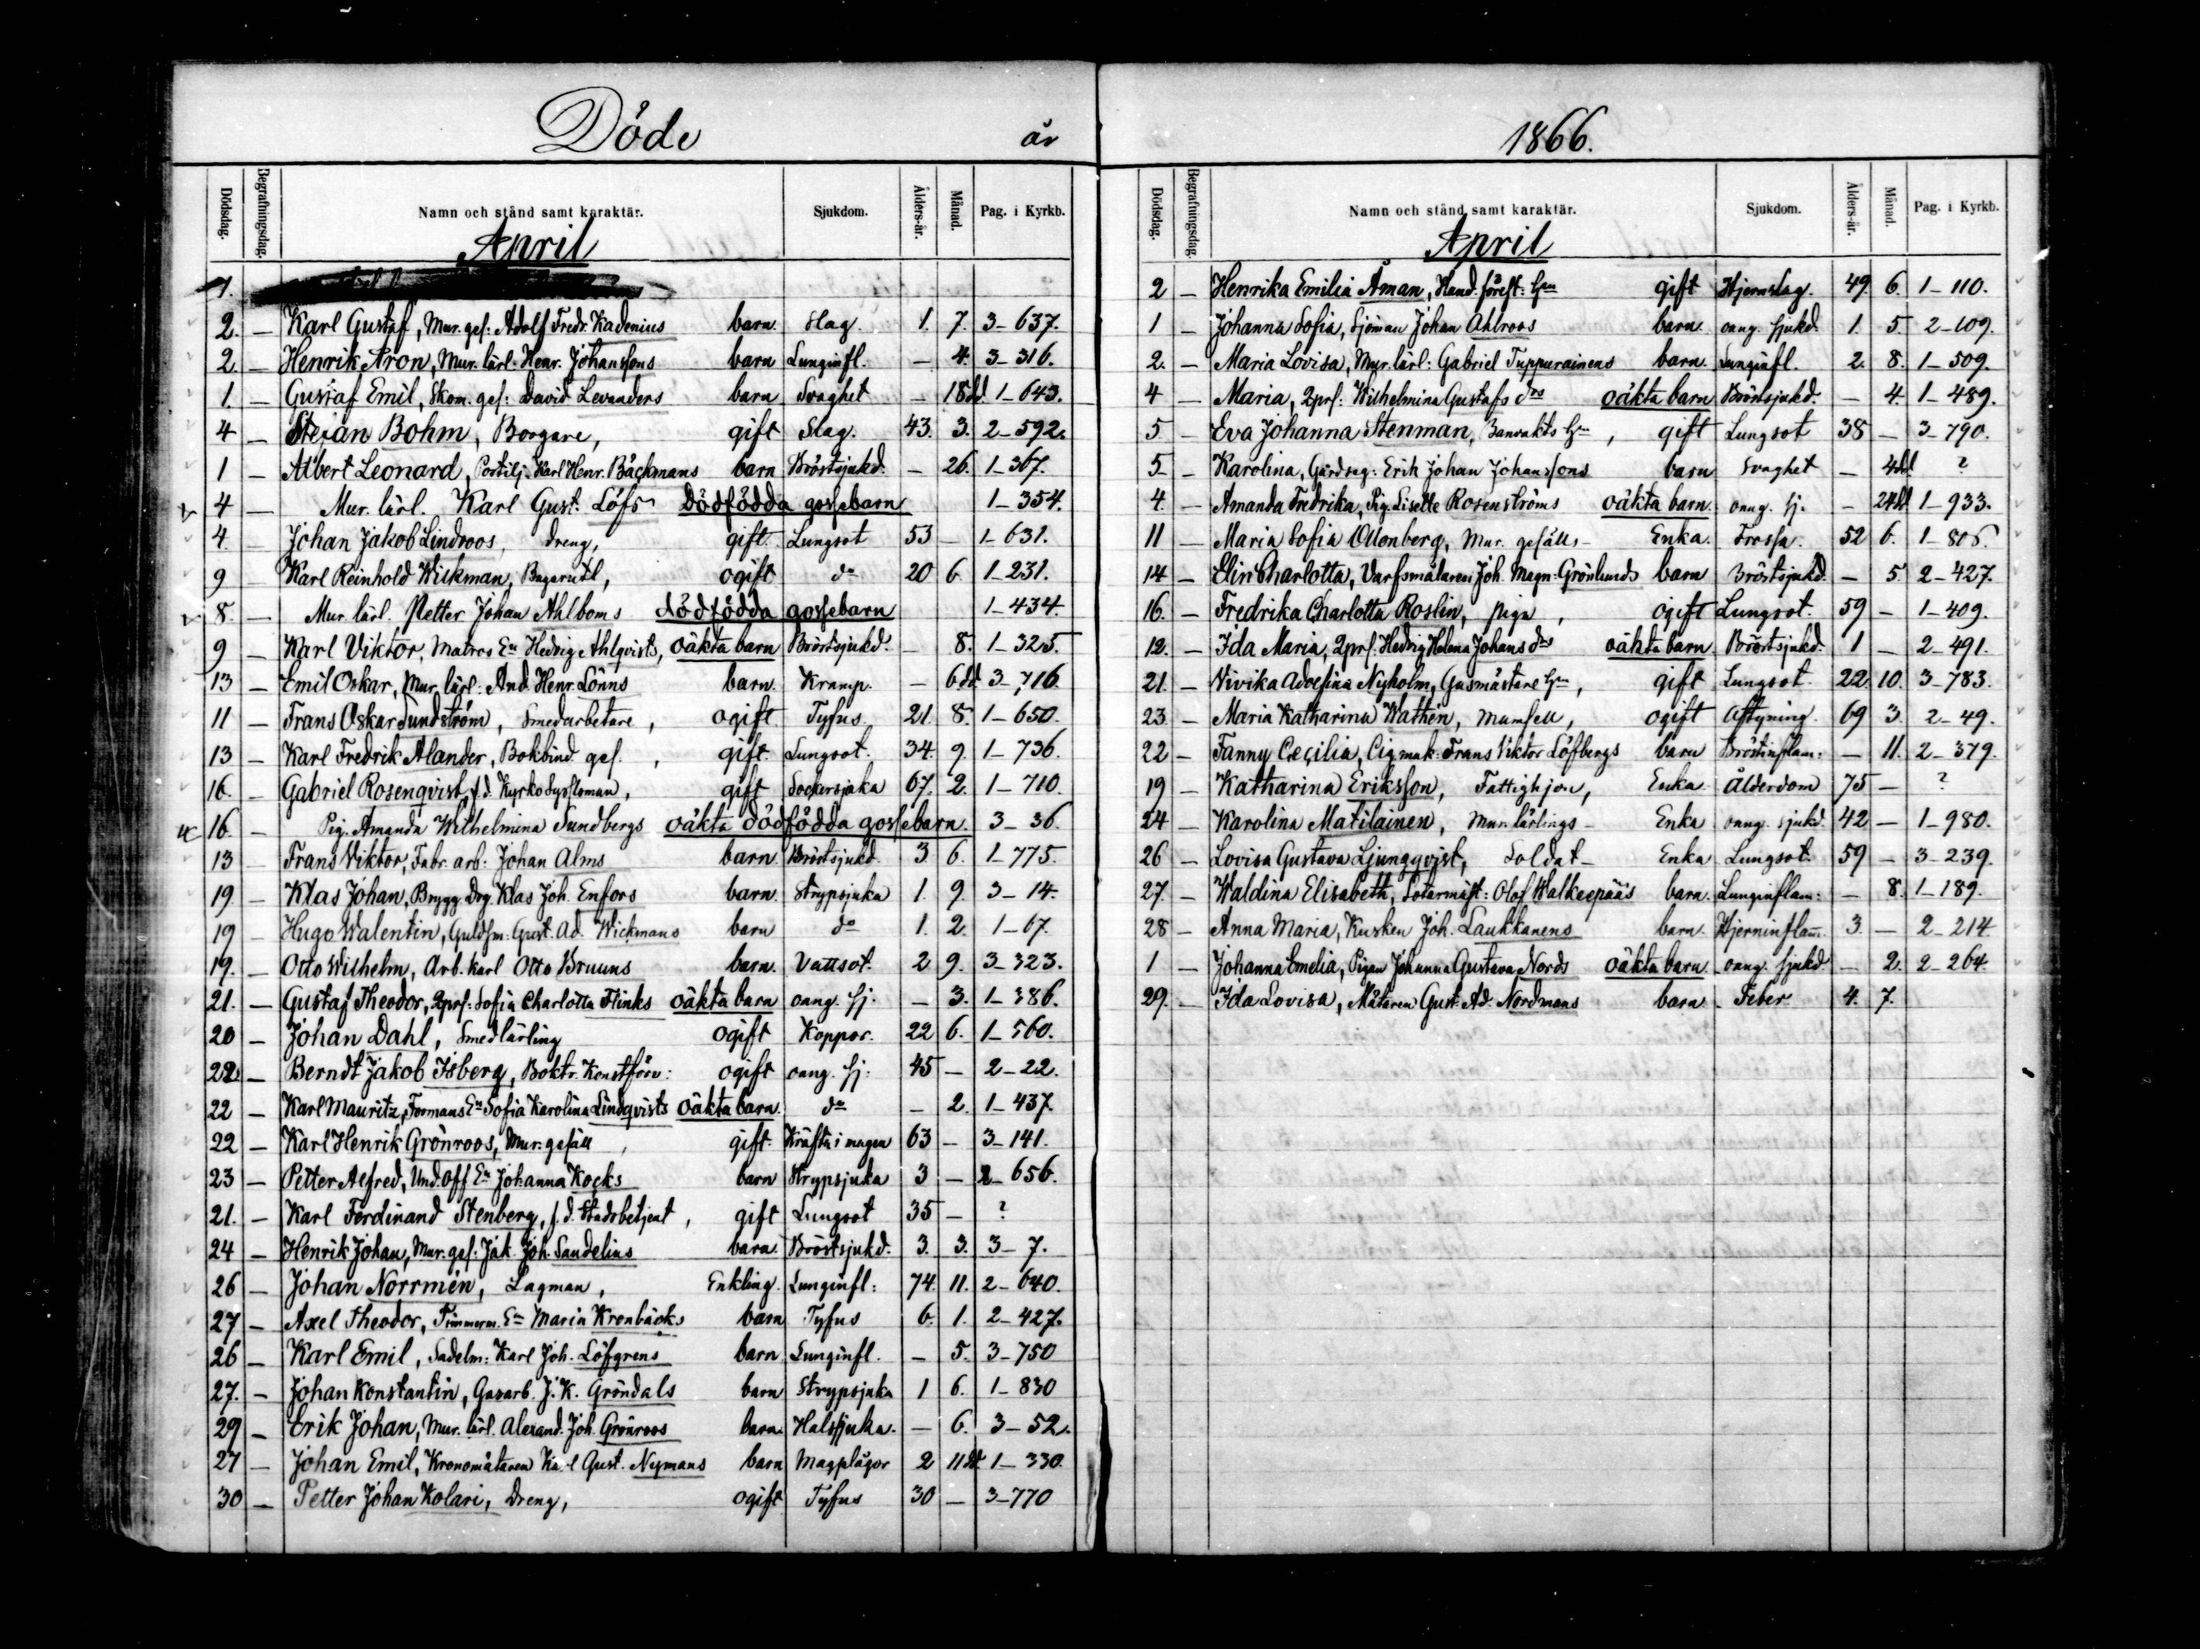 Döde år
Dödsdag. Begrafningsdag. Namn och stånd samt karaktär. Sjukdom. Ålders-år. Månad. Pag. i Kyrkb.
April
1.
2. — Karl Gustaf, Mur. ges: Adolf Fredr. Kadenius barn. Slag. 1. 7. 3—637.
2. — Henrik Aron, Mur. lärl. Henr. Johanssons barn Lunginfl. — 4. 3—316.
1. — Gustaf Emil, Skom. ges: David Levanders barn Svaghet — 18dd. 1—643.
4 — Stefan Bohm, Borgare, gift Slag. 43. 3. 2—592.
1 — Albert Leonard, Postilj. Karl Henr. Bäckmans barn Bröstsjukd. — 26. 1—367.
4 — Mur. lärl. Karl Gust. Löfs dödfödda gossebarn 1—354.
4. — Johan Jakob Lindroos, dreng, gift. Lungsot 53 — 1—631.
9 — Karl Reinhold Wickman, ogift do 20 6. 1—231.
8. — Mur. lärl. Petter Johan Ahlboms dödfödda gossebarn 1—434.
9 — Karl Viktor, Matros En Hedvig Ahlqvists, oäkta barn Bröstsjukd. — 8. 1—325.
13 — Emil Oskar, Mur. lärl: And. Henr. Lönns barn. Kramp. — 6dd 3—716.
11 — Frans Oskar Sundström, Smedarbetare, ogift Tyfus 21. 8. 1—650.
13 — Karl Fredrik Alander, Bokbind. ges., gift. Lungsot. 34. 9. 1—736.
16. — Gabriel Rosenqvist, f.d. Kyrkosyssloman, gift Sockersjuka 67. 2. 1—710.
16. — Pig. Amanda Wilhelmina Sundbergs oäkta dödfödda gossebarn. 3—36.
13 — Frans Viktor, Fabr. arb: Johan Alms barn. Bröstsjukd. 3. 6. 1—775.
19. — Klas Johan, Brygg. drg. Klas Joh. Enfors barn. Strypsjuka 1. 9. 3—14.
19 — Hugo Walentin, Guldsm. Gust. Ad. Wickmans barn do 1. 2. 1—67.
19. — Otto Wilhelm, Arb. karl Otto Bruuns barn. Vattsot. 2 9. 3—323.
21. — Gustaf Theodor, Qprs: Sofia Charlotta Flinks oäkta barn oang. sj. — 3. 1—386.
20 — Johan Dahl, Smedlärling ogift Koppor. 22 6. 1—560.
22 — Berndt Jakob Isberg, Boktr. Konstförv: ogift oang. sj: 45 — 2—22.
22 — Karl Mauritz, Formans En Sofia Karolina Lindqvists oäkta barn. do — 2. 1—437.
22 — Karl Henrik Grönroos, Mur. gesäll, gift. Kräfta i magen 63 — 3—141.
23 — Petter Alfred, Und. Off En Johanna Kocks barn Strypsjuka 3 — 2—656.
21. — Karl Ferdinand Stenberg, f.d. Stadsbetjent, gift Lungsot 35 — ?
24 — Henrik Johan, Mur. ges. Jak. Joh. Sandelins barn. Bröstsjukd. 3. 3. 3—7.
26 — Johan Norrmén, Lagman, Enkling. Lunginfl: 74. 11. 2—640.
27 — Axel Theodor, Timmerm. En Maria Kronbäcks barn Tyfus 6. 1. 2—427.
26 — Karl Emil, Sadelm: Karl Joh. Löfgrens barn Lunginfl. — 5. 3—750
27. — Johan Konstantin, Gasarb. J. K. Gröndals barn Strypsjuka 1 6. 1—830
29 — Erik Johan, Mur. lärl. Alexand. Joh. Grönroos barn. Halssjuka. — 6. 3—52.
27 — Johan Emil, Kronomätaren Karl Gust. Nymans barn Magplågor 2 11dd. 1—330.
30 — Petter Johan Kolari, Dreng, ogift Tyfus 30 — 3—770
1866.
Dödsdag. Begrafningsdag. Namn och stånd samt karaktär. Sjukdom. Ålders-år. Månad. Pag. i Kyrkb.
April
2 — Henrika Emilia Åman, Hand. förest: Hu gift Hjernslag. 49. 6. 1—110.
1 — Johanna Sofia, Sjöman Johan Ahlroos barn. oang. sjukd. 1. 5. 2—109.
2. — Maria Lovisa, Mur. lärl: Gabriel Tuppurainens barn. Lunginfl. 2. 8. 1—509.
4 — Maria, Qprs: Wilhelmina Gustafs drs oäkta barn Bröstsjukd. — 4. 1—489.
5 — Eva Johanna Stenman, Banvakts Hu, gift Lungsot 38 — 3—790.
5 — Karolina, Gårdseg: Erik Johan Johanssons barn Svaghet — 4dd. ?
4. — Amanda Fredrika, Pig. Lisette Rosenströms oäkta barn. oang. sj. — 24dd. 1—933.
11 — Maria Sofia Ollonberg, Mur. gesälls— Enka. Frossa. 52 6. 1—806.
14 — Elin Charlotta, Varfsmålaren Joh. Magn. Grönlunds barn Bröstsjukd. — 5. 2—427.
16. — Fredrika Charlotta Roslin, piga, ogift Lungsot. 59 — 1—409.
12. — Ida Maria, Qprs. Hedvig Helena Johans drs oäkta barn Bröstsjukd. 1 — 2—491.
21. — Vivika Adolfina Nyholm, Gasmästare Hu, gift Lungsot. 22. 10. 3—783.
23. — Maria Katharina Wathén, Mamsell, ogift Aftyning. 69 3. 2—49.
22 — Fanny Cecilia, Cig. mak. Frans Viktor Löfbergs barn Bröstinflam: — 11. 2—379.
19 — Katharina Eriksson, Fattighjon, Enka. Ålderdom 75 — ?
24 — Karolina Matilainen, Mur. lärlings— Enka oang. sjukd. 42 — 1—980.
26 — Lovisa Gustava Ljungqvist, Soldat— Enka Lungsot. 59 — 3—239.
27. — Waldina Elisabeth, Sotarmäst: Olof Walkeepääs barn. Lunginflam: — 8. 1—189.
28 — Anna Maria, Kusken Joh. Laukkanens barn. Hjerninflam. 3. — 2—214.
1 — Johanna Emelia, Pigan Johanna Gustava Nords oäkta barn. oang. sjukd. — 2. 2—264.
29. — Ida Lovisa, Mätaren Gust. Ad. Nordmans barn. Feber. 4. 7.